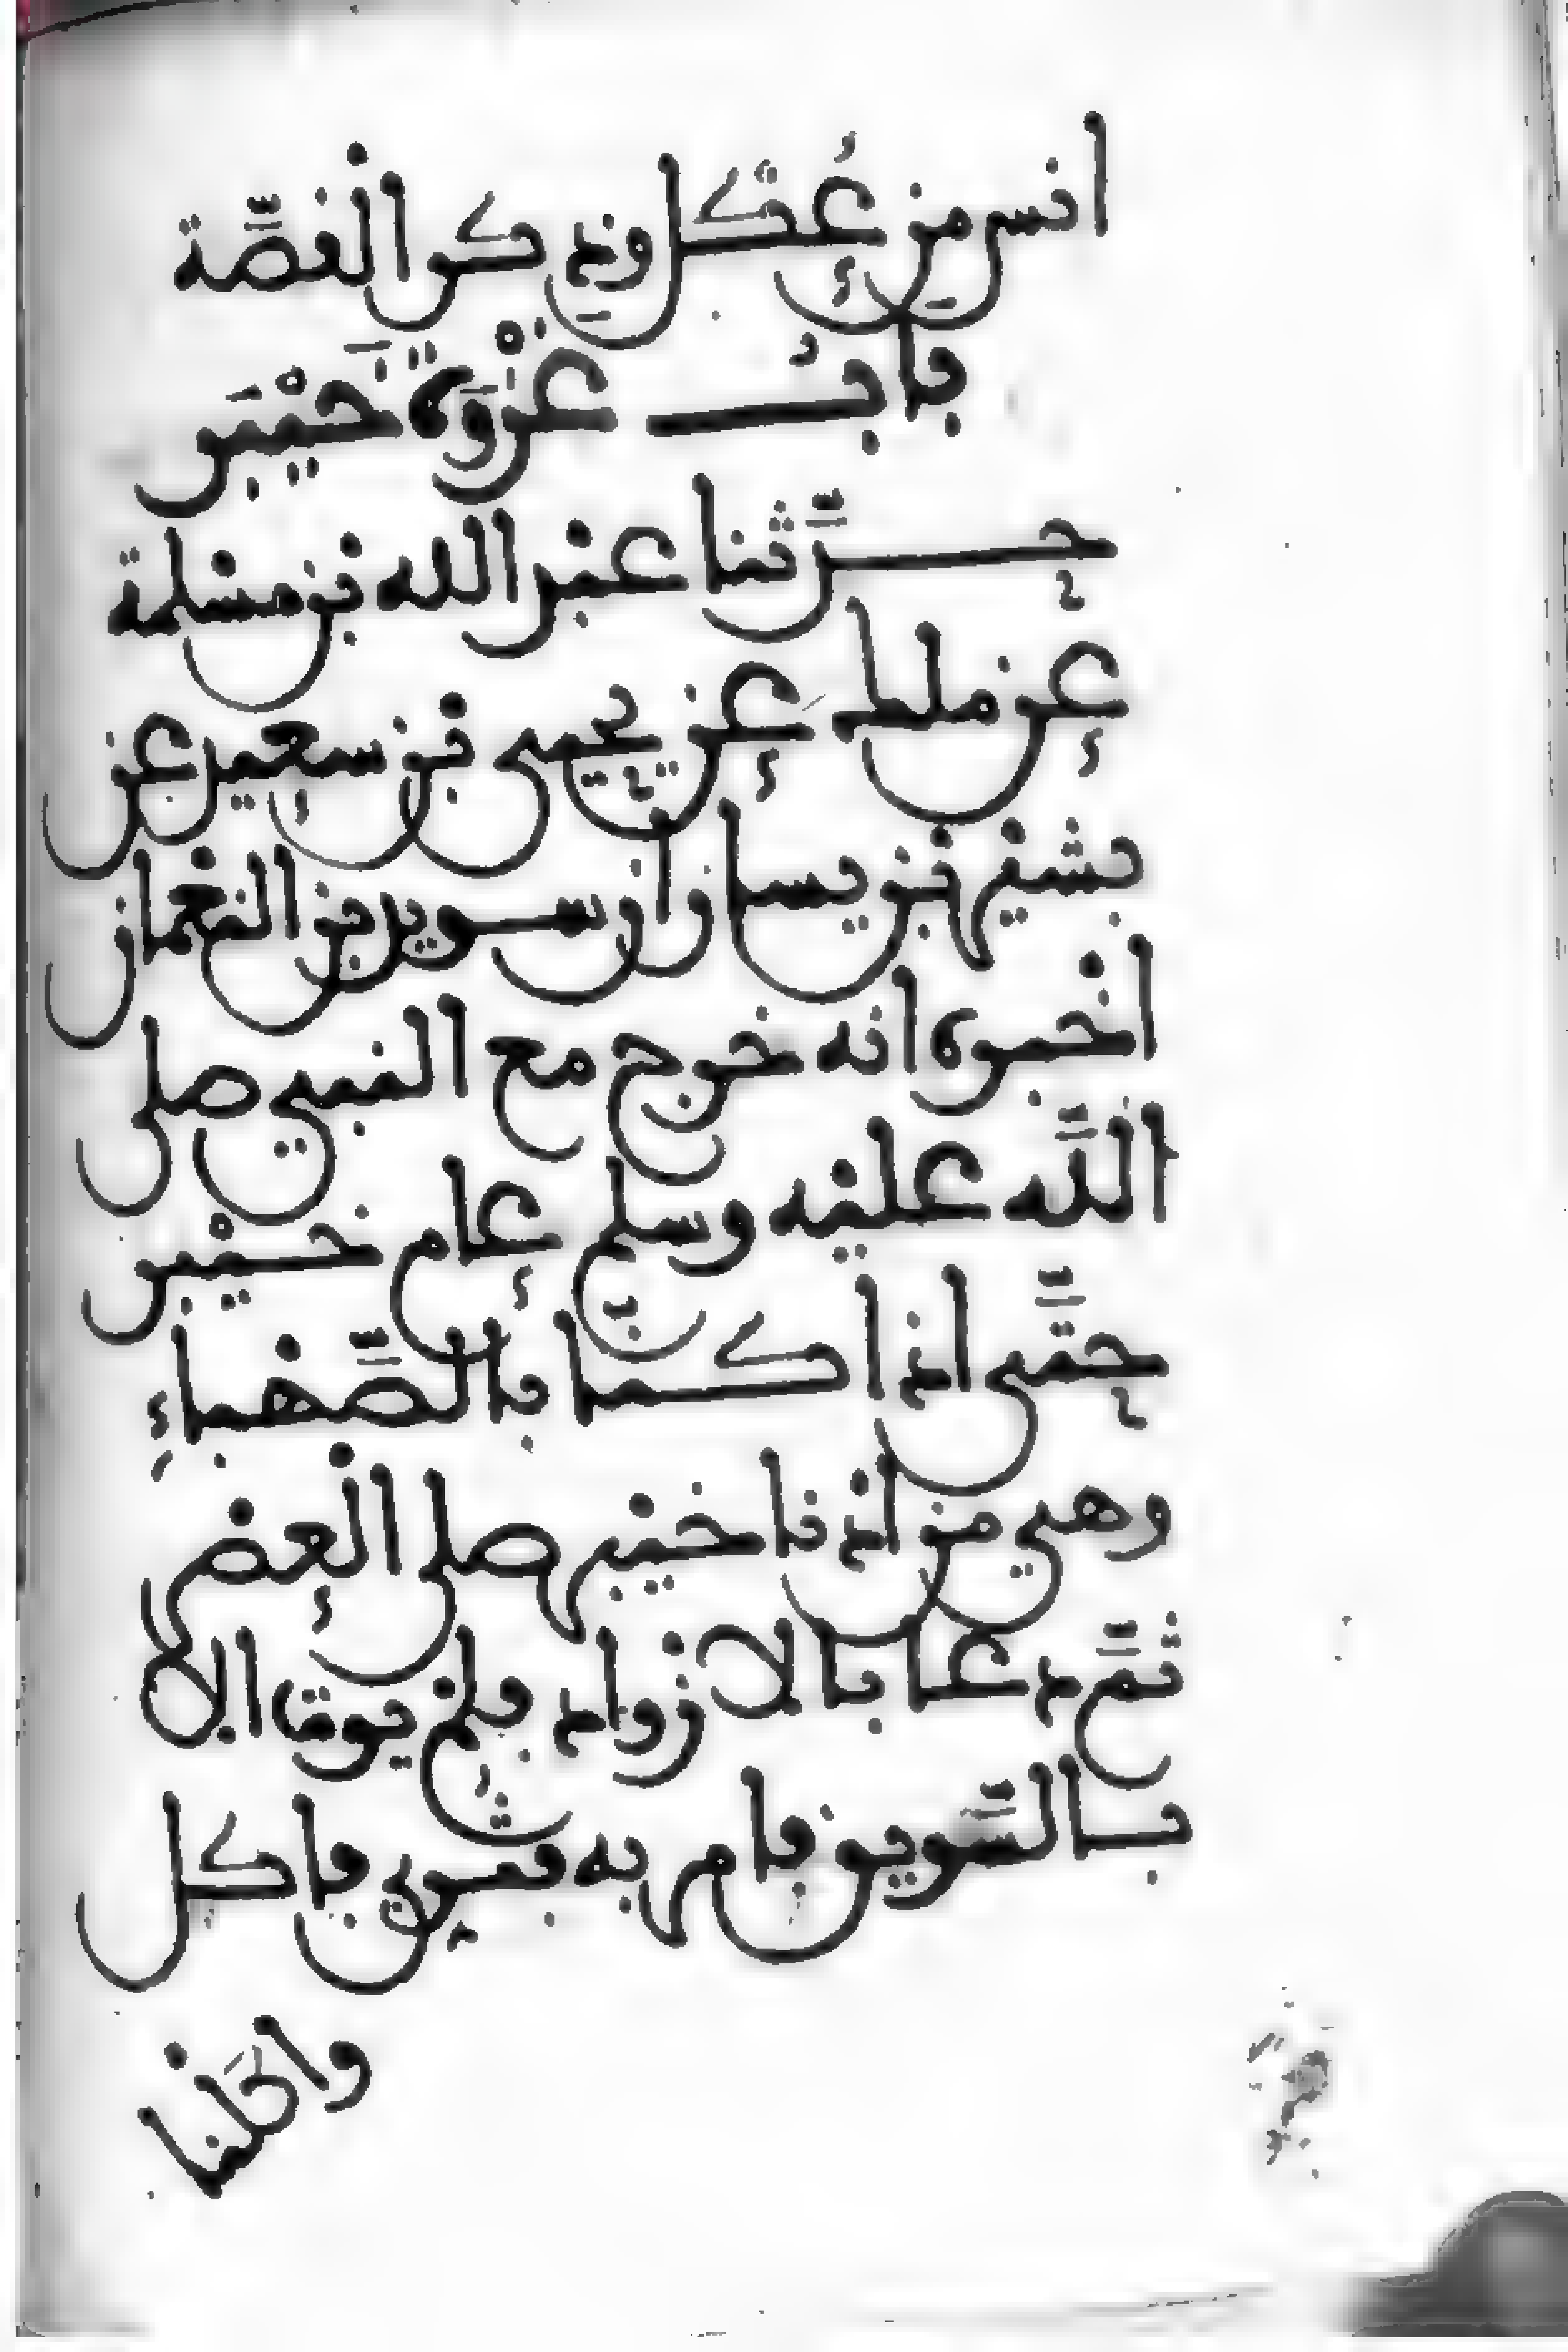 انس من عُكْل وذكر الْقصَّة
بابُ غزْوَة خَيْبَر
حدَّثنا عبْد الله بْن مسْلمة
عن ملك عن يحيى بْن سعيد عن
بشيْر بْن يسار ان سويد بن النعْمان
اخْبره انه خرج مع النبي صلى
اللَّه عليْه وسلم عام خيْبر
حتَّى اذا كنا بالصَّهْباءِ
وهي من ادْنا خيْبر صلى الْعصْر
ثمَّ دعا بالازْواد فلمْ يوت الا
بالسَّويق فامر به فثري فاكل
واكلْنا